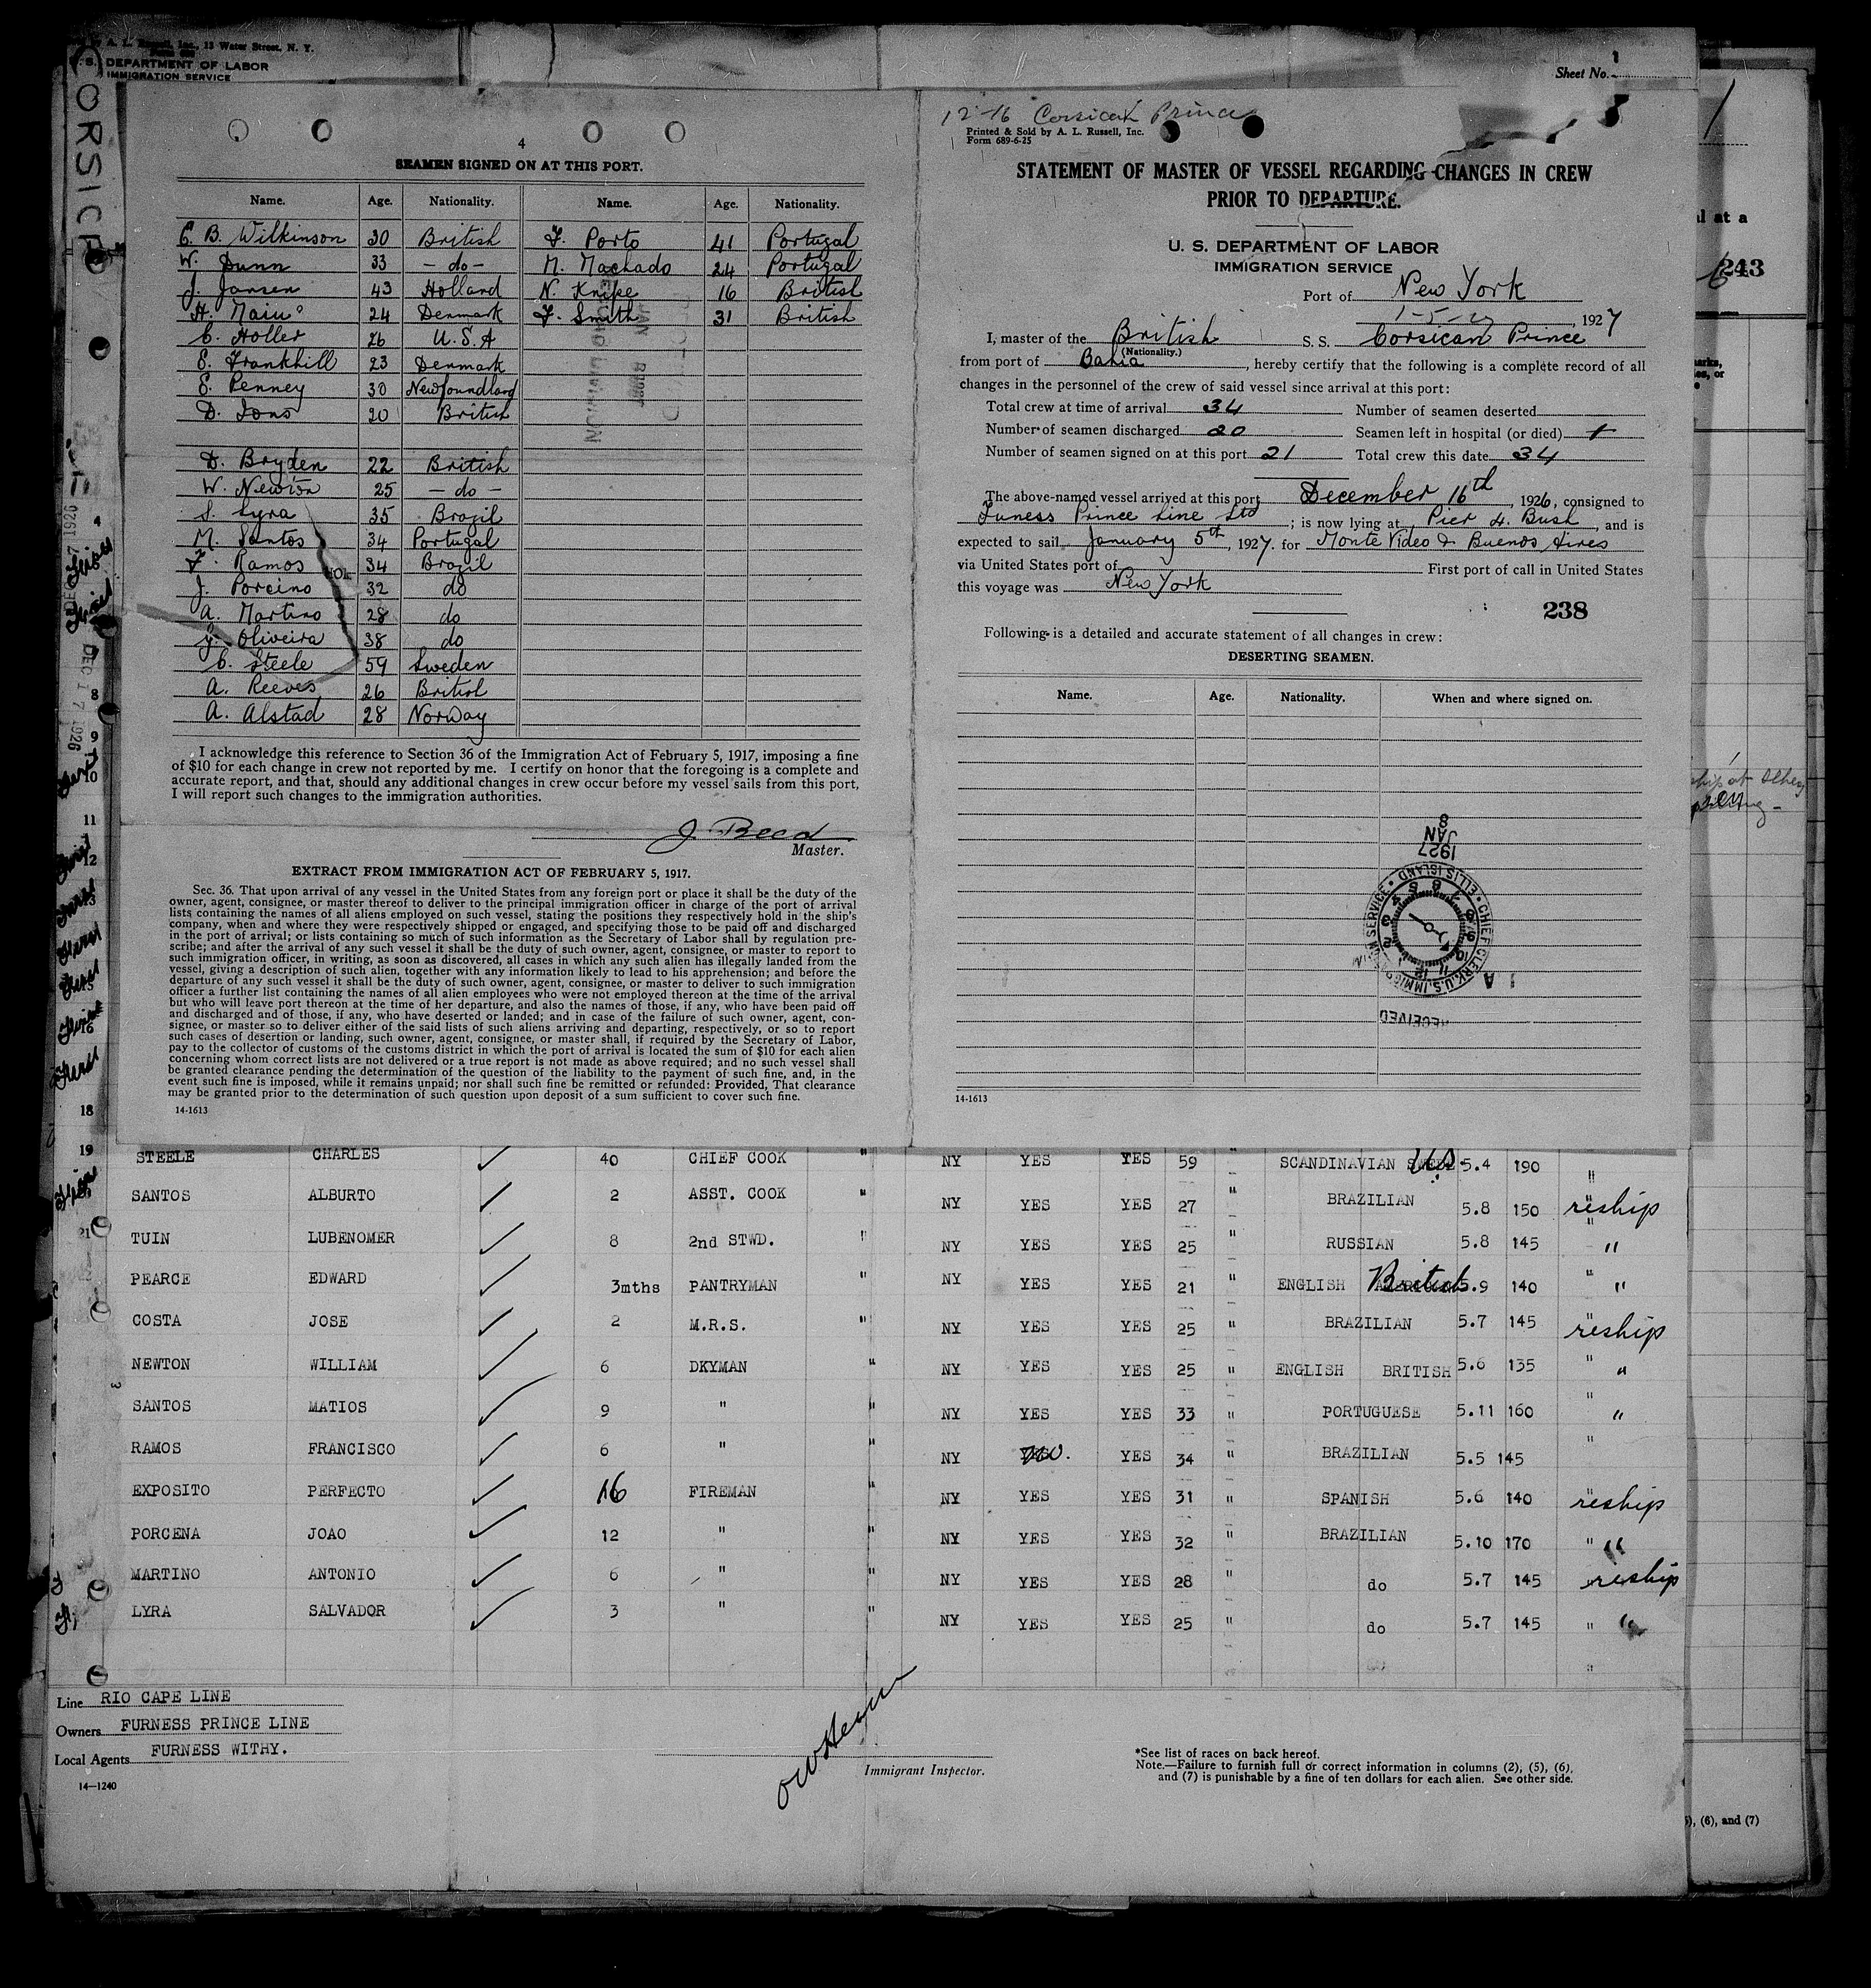 A. L. Russell, Inc., 13 Water Street, N. Y.
U. S. DEPARTMENT OF LABOR
IMMIGRATION SERVICE
Sheet No. 1
4
SEAMEN SIGNED ON AT THIS PORT.
Name. Age. Nationality. Name. Age. Nationality.
E. B. Wilkinson 30 British F. Porto 41 Portugal
W. Dunn 33 - do - M. Machado 24 Portugal
J. Jansen 43 Holland N. Knipe 16 British
H. Main 24 Denmark F. Smith 31 British
C. Holler 26 U.S.A
E. Frankhill 23 Denmark
E. Penney 30 Newfoundland
D. Ions 20 British
D. Bryden 22 British
W. Newton 25 - do -
S. Lyra 35 Brazil
M. Santos 34 Portugal
F. Ramos 34 Brazil
J. Porcino 32 do
A. Martino 28 do
J. Oliveira 38 do
C. Steele 59 Sweden
A. Reeves 26 British
A. Alstad 28 Norway
I acknowledge this reference to Section 36 of the Immigration Act of February 5, 1917, imposing a fine
of $10 for each change in crew not reported by me. I certify on honor that the foregoing is a complete and
accurate report, and that, should any additional changes in crew occur before my vessel sails from this port,
I will report such changes to the immigration authorities.
J. Reed
Master.
EXTRACT FROM IMMIGRATION ACT OF FEBRUARY 5, 1917.
Sec. 36. That upon arrival of any vessel in the United States from any foreign port or place it shall be the duty of the
owner, agent, consignee, or master thereof to deliver to the principal immigration officer in charge of the port of arrival
lists containing the names of all aliens employed on such vessel, stating the positions they respectively hold in the ship's
company, when and where they were respectively shipped or engaged, and specifying those to be paid off and discharged
in the port of arrival; or lists containing so much of such information as the Secretary of Labor shall by regulation pre-
scribe; and after the arrival of any such vessel it shall be the duty of such owner, agent, consignee, or master to report to
such immigration officer, in writing, as soon as discovered, all cases in which any such alien has illegally landed from the
vessel, giving a description of such alien, together with any information likely to lead to his apprehension; and before the
departure of any such vessel it shall be the duty of such owner, agent, consignee, or master to deliver to such immigration
officer a further list containing the names of all alien employees who were not employed thereon at the time of the arrival
but who will leave port thereon at the time of her departure, and also the names of those, if any, who have been paid off
and discharged and of those, if any, who have deserted or landed; and in case of the failure of such owner, agent, con-
signee, or master so to deliver either of the said lists of such aliens arriving and departing, respectively, or so to report
such cases of desertion or landing, such owner, agent, consignee, or master shall, if required by the Secretary of Labor,
pay to the collector of customs of the customs district in which the port of arrival is located the sum of $10 for each alien
concerning whom correct lists are not delivered or a true report is not made as above required; and no such vessel shall
be granted clearance pending the determination of the question of the liability to the payment of such fine, and, in the
event such fine is imposed, while it remains unpaid; nor shall such fine be remitted or refunded: Provided, That clearance
may be granted prior to the determination of such question upon deposit of a sum sufficient to cover such fine.
14-1613
12-16 Corsican Prince
Printed & Sold by A. L. Russell, Inc.
Form 689-6-25
STATEMENT OF MASTER OF VESSEL REGARDING CHANGES IN CREW
PRIOR TO DEPARTURE.
U. S. DEPARTMENT OF LABOR
IMMIGRATION SERVICE
Port of New York
1-5-27, 1927
I, master of the British S. S. Corsican Prince
(Nationality.)
from port of Bahia, hereby certify that the following is a complete record of all
changes in the personnel of the crew of said vessel since arrival at this port:
Total crew at time of arrival 34 Number of seamen deserted
Number of seamen discharged 20 Seamen left in hospital (or died) 1
Number of seamen signed on at this port 21 Total crew this date 34
The above-named vessel arrived at this port December 16th, 1926, consigned to
Furness Prince Line Ltd; is now lying at Pier 4. Bush, and is
expected to sail January 5th, 1927. for Monte Video & Buenos Aires
via United States port of First port of call in United States
this voyage was New York
238
Following is a detailed and accurate statement of all changes in crew:
DESERTING SEAMEN.
Name. Age. Nationality. When and where signed on.
1927
JAN
8
CHIEF CLERK, U.S. IMMIGRATION SERVICE • ELLIS ISLAND •
RECEIVED
14-1613
243
19 STEELE CHARLES 40 CHIEF COOK " NY YES YES 59 SCANDINAVIAN U.S. 5.4 190 "
SANTOS ALBURTO 2 ASST. COOK " NY YES YES 27 " BRAZILIAN 5.8 150 reship
21 TUIN LUBENOMER 8 2nd STWD. " NY YES YES 25 " RUSSIAN 5.8 145 " "
PEARCE EDWARD 3mths PANTRYMAN " NY YES YES 21 " ENGLISH British 5.9 140 " "
COSTA JOSE 2 M.R.S. " NY YES YES 25 " BRAZILIAN 5.7 145 " reship
NEWTON WILLIAM 6 DKYMAN " NY YES YES 25 " ENGLISH BRITISH 5.6 135 " "
SANTOS MATIOS 9 " " NY YES YES 33 " PORTUGUESE 5.11 160 " "
RAMOS FRANCISCO 6 " " NY no. YES 34 " BRAZILIAN 5.5 145 "
EXPOSITO PERFECTO 16 FIREMAN " NY YES YES 31 " SPANISH 5.6 140 reship
PORCENA JOAO 12 " " NY YES YES 32 " BRAZILIAN 5.10 170 " "
MARTINO ANTONIO 6 " " NY YES YES 28 " do 5.7 145 reship
LYRA SALVADOR 3 " " NY YES YES 25 " do 5.7 145 " "
Line RIO CAPE LINE
Owners FURNESS PRINCE LINE
Local Agents FURNESS WITHY.
14-1240
Immigrant Inspector.
*See list of races on back hereof.
Note.—Failure to furnish full or correct information in columns (2), (5), (6),
and (7) is punishable by a fine of ten dollars for each alien. See other side.
(6), and (7)